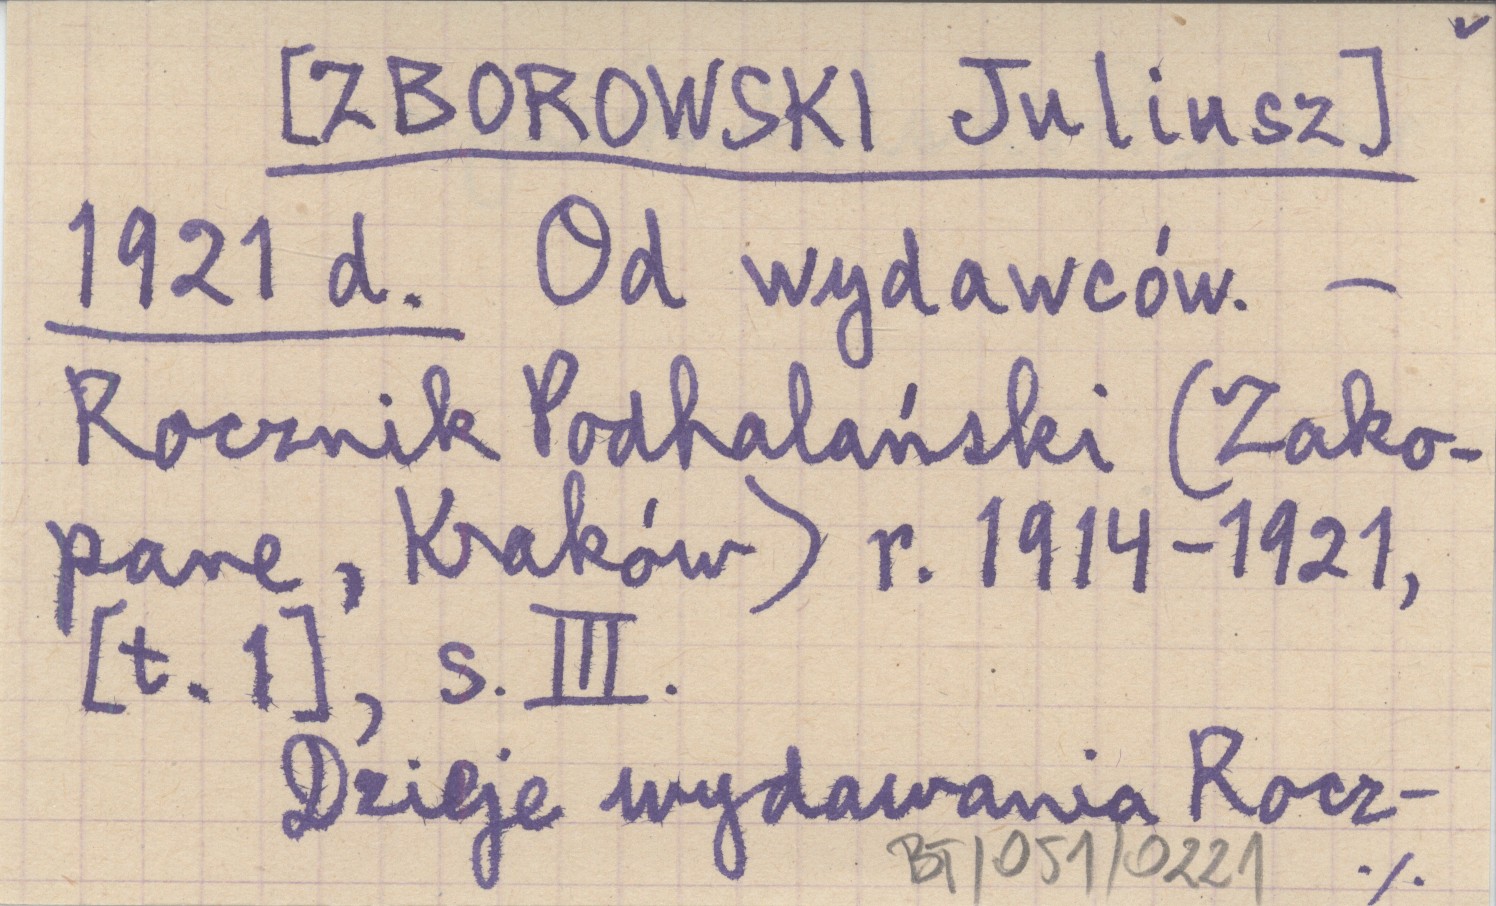 [ZBOROWSKI Juliusz]
1921 d. Od wydawców. –
Rocznik Podhalański (Zako-
pane, Kraków) r. 1914-1921,
[t. 1], s. III.
Dzieje wydawania Rocz-
BT/051/0221 ./.